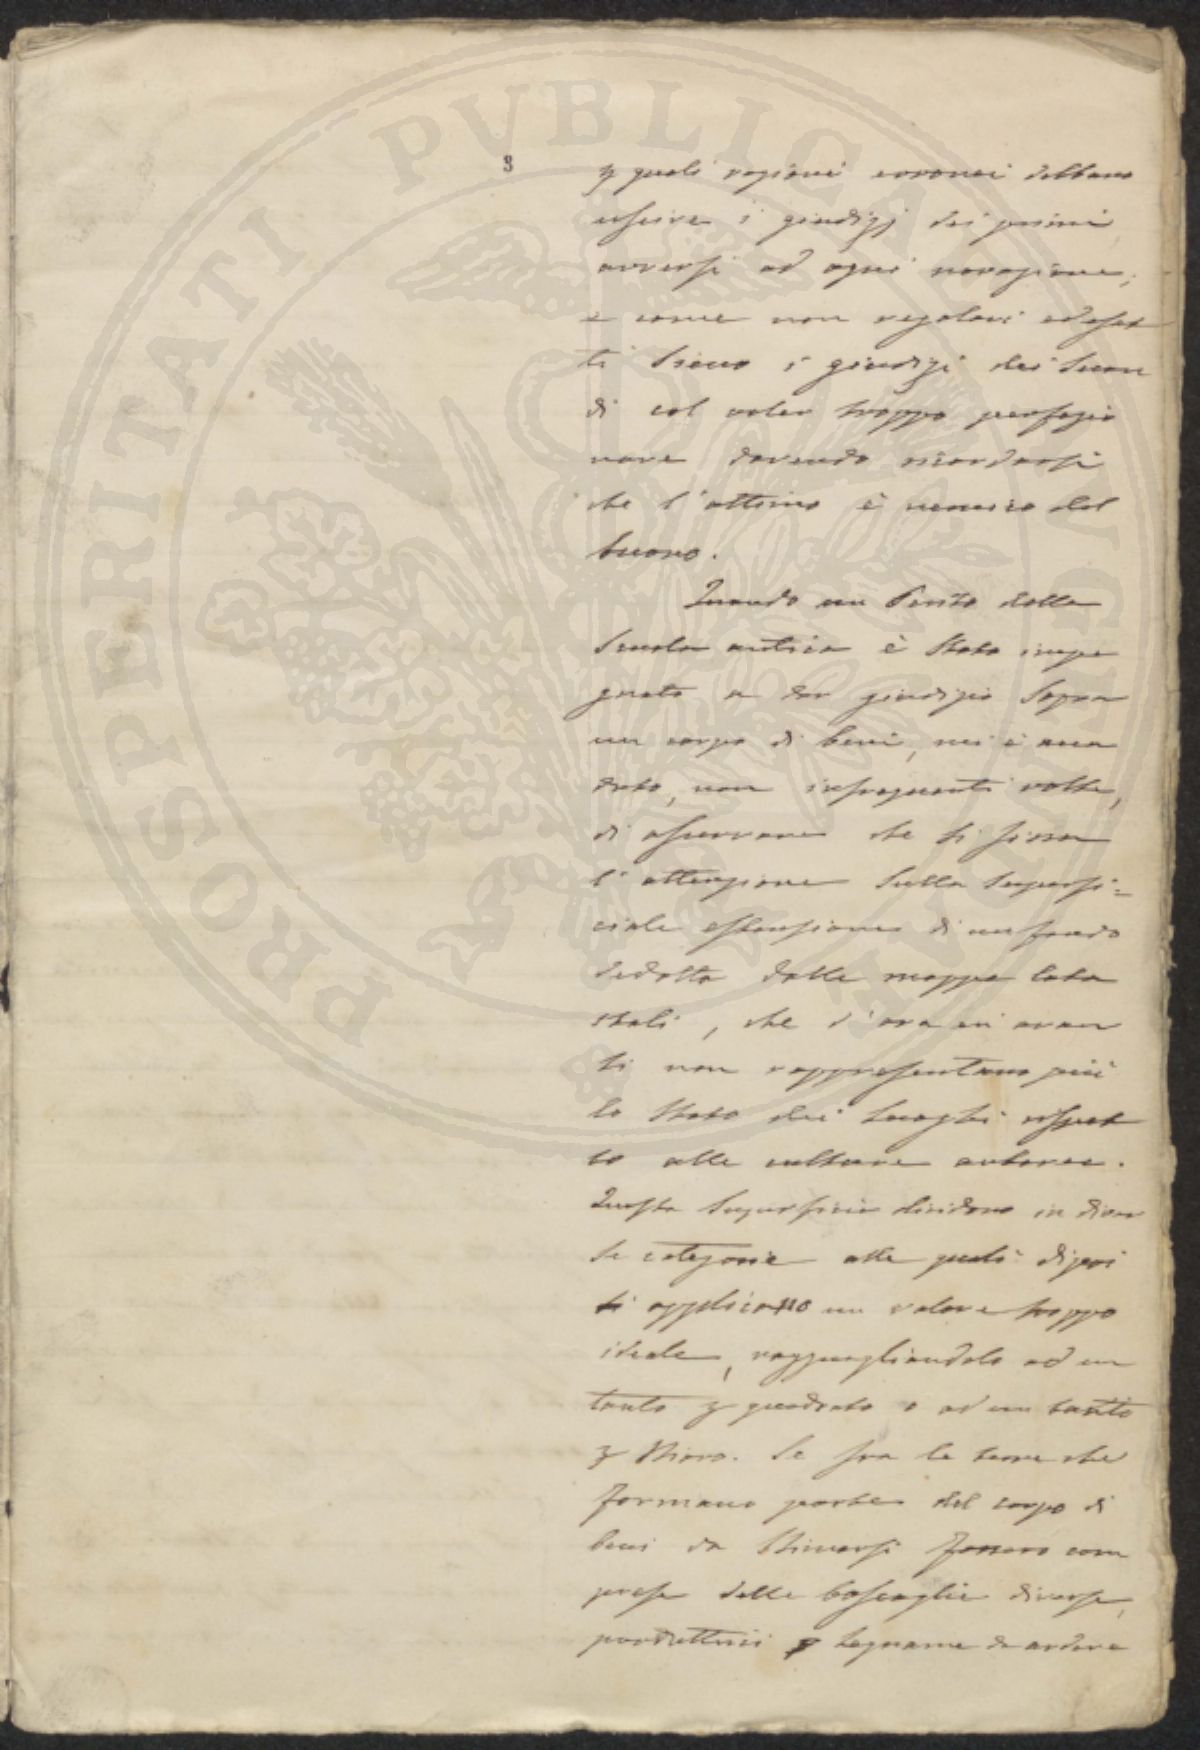 3
p quali ragioni erronei debbano
escire i giudizj dei primi
avversi ad ogni novazione;
e come non regolari ed esat
ti sieno i giudizi dei secon
di col voler troppo perfezio
nare dovendo ricordarsi
che l'ottimo è nemico del
buono.
Quando un Perito della
Scuola antica è stato impe
gnato a dar giudizio sopra
un corpo di beni, mi è acca
duto, non infrequenti volte,
di osservare che si fissa
l'attenzione sulla superfi=
ciale estensione di un fondo
dedotta dalle mappe Cata
stali, che d'ora in avan
ti non rappresentano più
lo stato dei luoghi rispet
to alle culture arboree.
Questa superficie dividono in diver
se categorie alle quali dipoi
si applicano un valore troppo
ideale, ragguagliandolo ad un
tanto p quadrato o ad un tanto
p stioro. Se fra le terre che
formano parte del corpo di
beni da stimarsi fossero com
prese delle boscaglie diverse,
produttrici p legname da ardere
PROSPERITATI PVBLICAE AVGENDAE